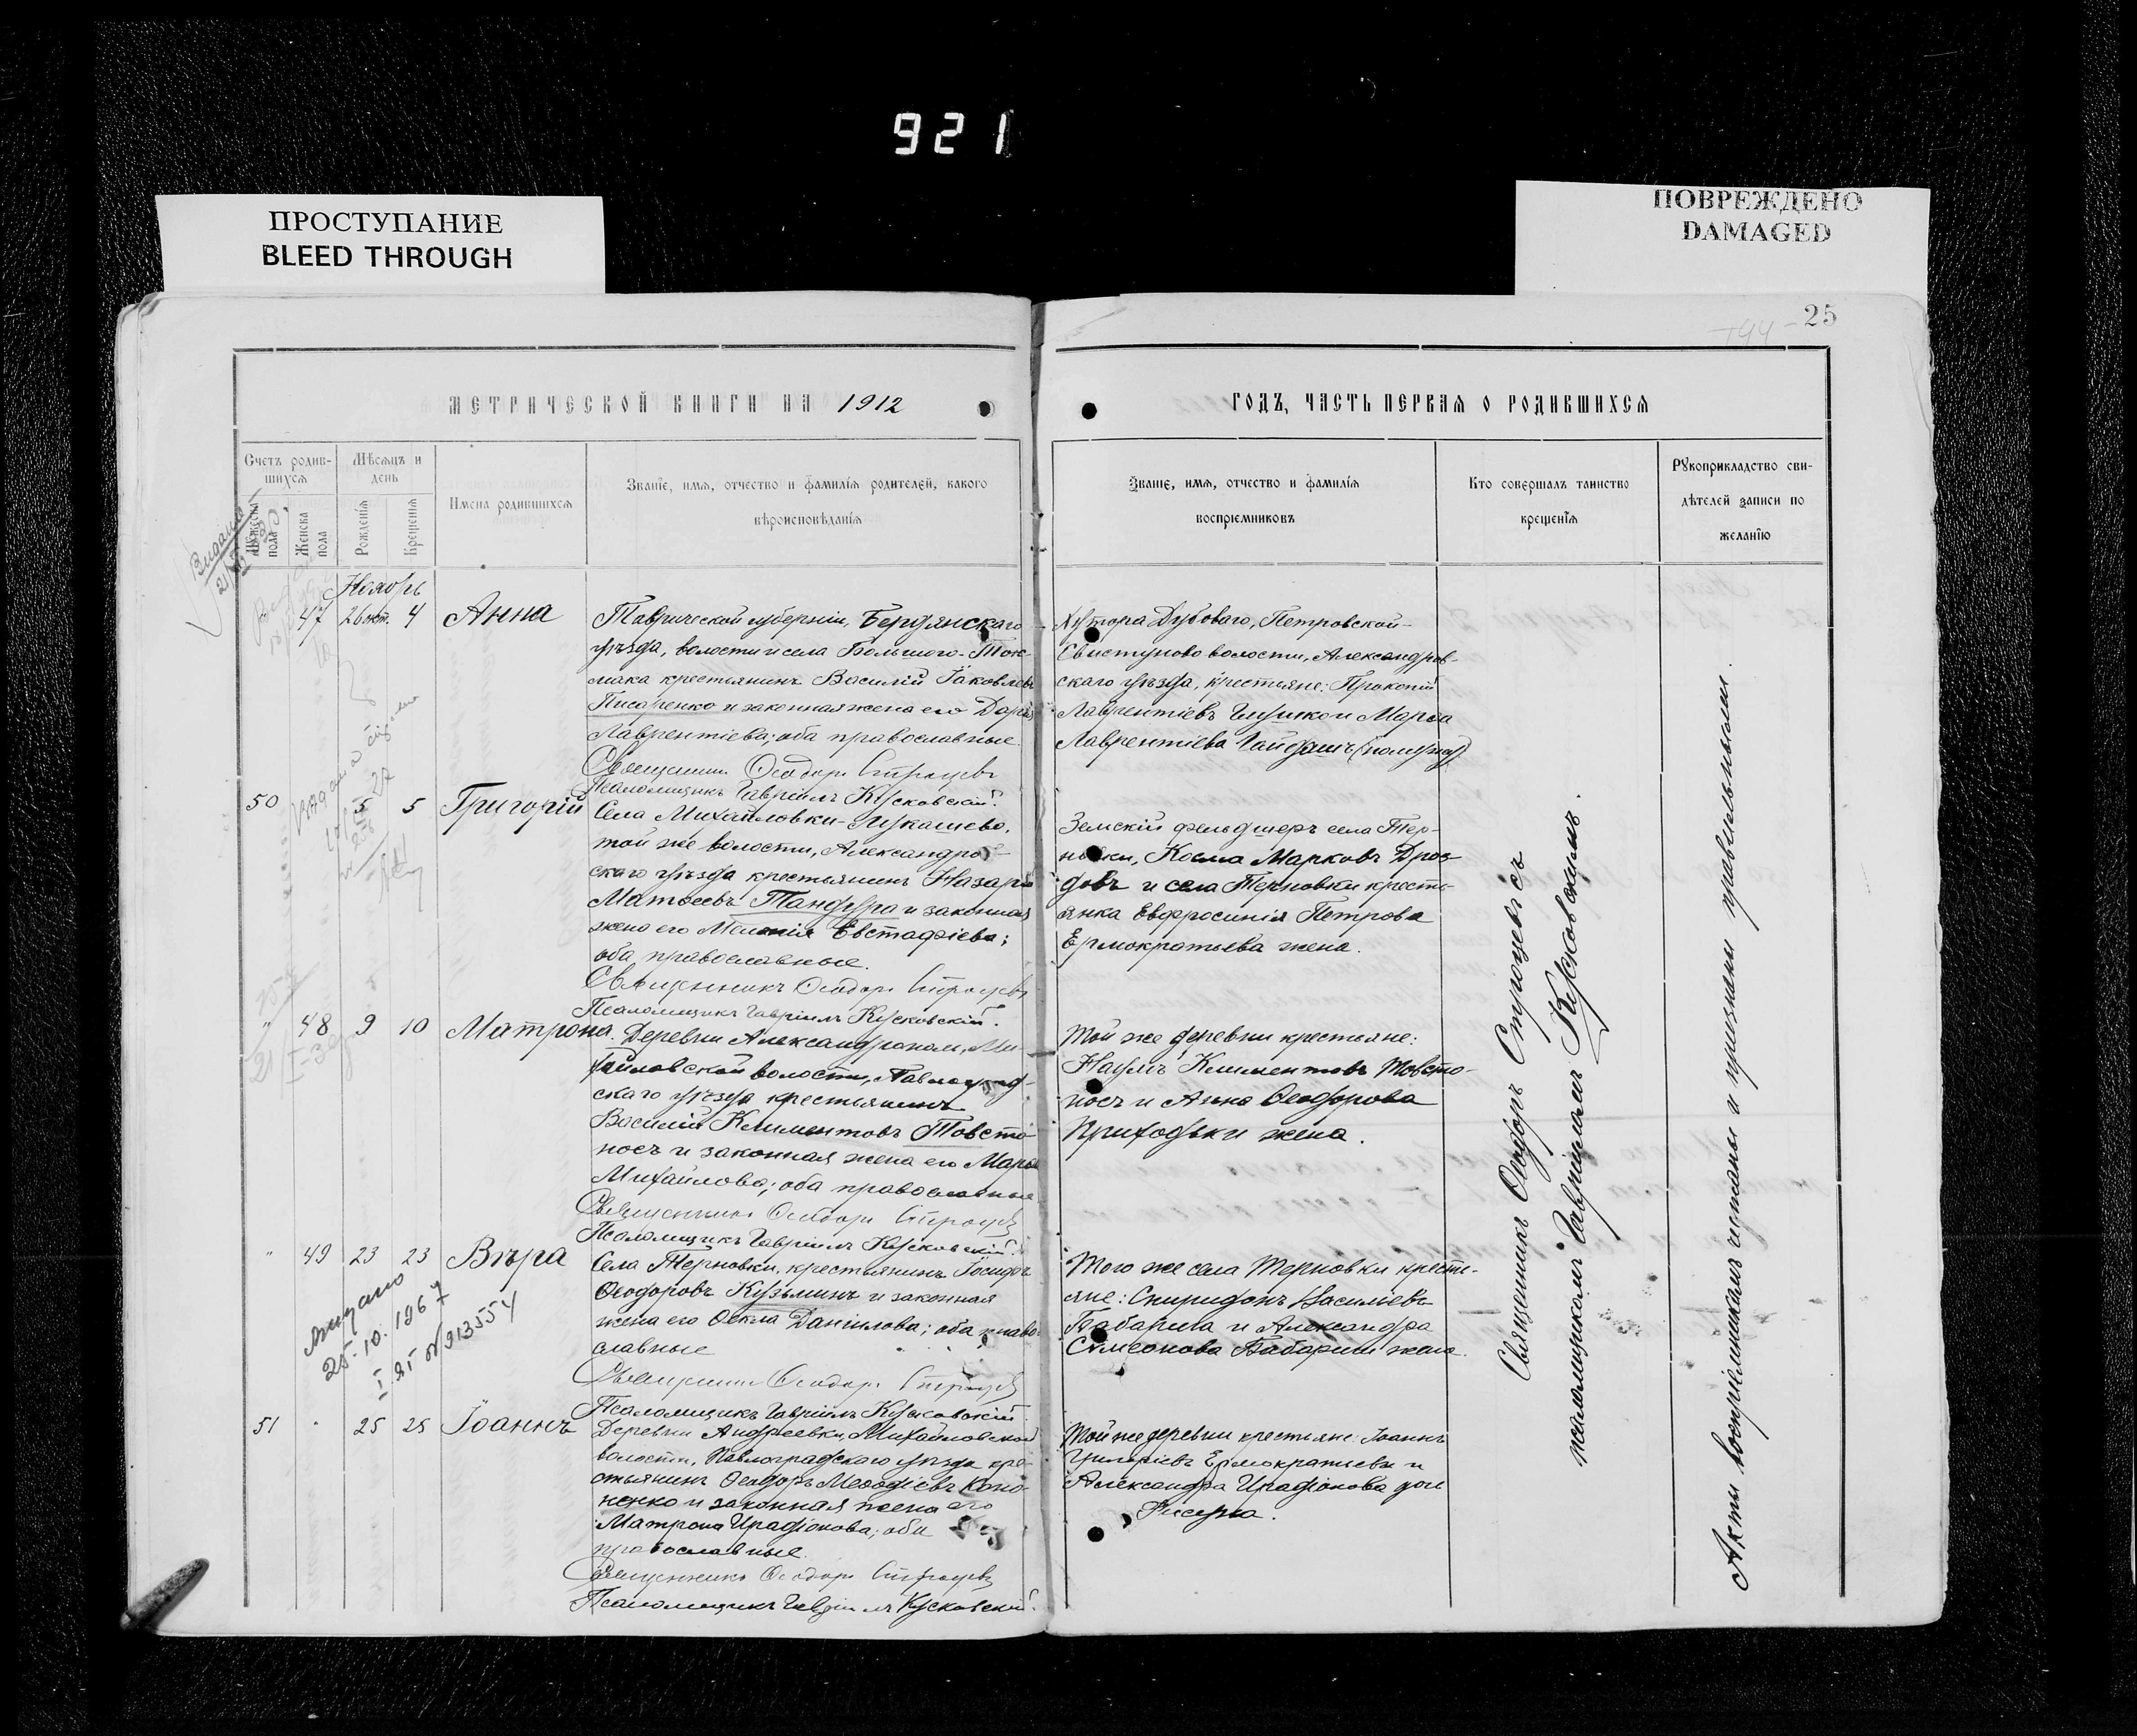 921
ПРОСТУПАНИЕ
BLEED THROUGH
ПОВРЕЖДЕНО
DAMAGED
25
МЕТРИЧЕСКОЙ КНИГИ НА 1912
ГОДЪ, ЧАСТЬ ПЕРВАЯ О РОДИВШИХСЯ
Счетъ родив-
шихся
Мѣсяцъ и
день
Мужеска
пола
Женска
пола
Рожденія
Крещенія
Имена родившихся
Званіе, имя, отчество и фамилія родителей, какого
вѣроисповѣданія
Званіе, имя, отчество и фамилія
воспріемниковъ
Кто совершалъ таинство
крещенія
Рукоприкладство сви-
дѣтелей записи по
желанію
Ноябрь
47 26 окт. 4 Анна
Таврической губерніи, Бердянскаго
уѣзда, волости и села Большого-Ток-
мака крестьянинъ Василій Іаковлевъ
Писаренко и законная жена его Дарія
Лаврентіева; оба православные.
Священникъ Ѳеодоръ
Псаломщикъ Гавріилъ Кусковскій.
Хутора Дубоваго, Петровской-
Свистуново волости, Александров-
скаго уѣзда, крестьяне: Прокопій
Лаврентіевъ и Марѳа
Лаврентіева
50 5 5 Григорій
Села Михайловки-Лукашево,
той же волости, Александров-
скаго уѣзда крестьянинъ Назарій
Матѳеевъ Тандура и законная
жена его Меланія Евстафіева;
оба православные.
Священникъ Ѳеодоръ
Псаломщикъ Гавріилъ Кусковскій.
Земскій фельдшеръ села Тер-
новки, Косма Марковъ Дроз-
довъ и села Терновки кресть-
янка Евфросинія Петрова
Ермократьева жена.
" 48 9 10 Матрона.
Деревни Александрополя, Ми-
хайловской волости, Павлоград-
скаго уѣзда крестьянинъ
Василій Климентовъ Товсто-
носъ и законная жена его Марѳа
Михайлова; оба православные
Священникъ Ѳеодоръ
Псаломщикъ Гавріилъ Кусковскій.
Той же деревни крестьяне:
Наумъ Климентовъ Товсто-
носъ и Анна Ѳеодорова
Приходьки жена.
" 49 23 23 Вѣра
Села Терновки, крестьянинъ Іосифъ
Ѳеодоровъ Кузьминъ и законная
жена его Ѳекла Даніилова; оба право-
славные
Священникъ Ѳеодоръ
Псаломщикъ Гавріилъ Кусковскій
Того же села Терновки кресть-
яне: Спиридонъ Васильевъ
Бабарика и Александра
Симеонова жена.
25.10.1967
51 " 25 25 Іоаннъ
Деревни Андреевки, Михайловской
волости, Павлоградскаго уѣзда кре-
стьянинъ Ѳеодоръ Меѳодіевъ Коно-
ненко и законная жена его
Матрона Иродіонова; оба
православные.
Священникъ Ѳеодоръ
Псаломщикъ Гавріилъ Кусковскій.
Той же деревни крестьяне: Іоаннъ
Григоріевъ Ермократьевъ и
Александра Иродіонова
Священникъ Ѳеодоръ съ
псаломщикомъ Гавріиломъ Кусковскимъ.
Акты воспріемникамъ читаны и признаны правильными.